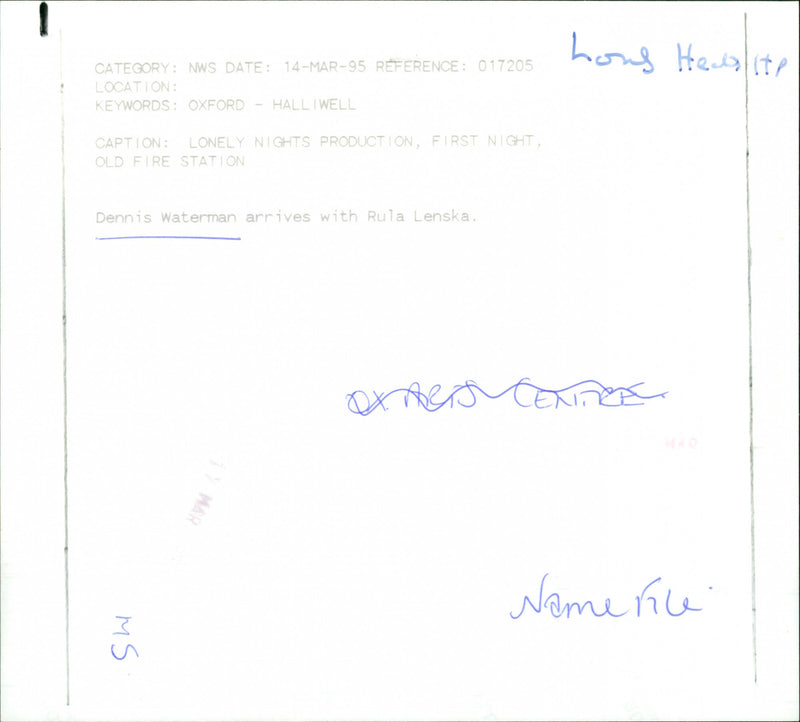 CATEGORY: NWS DATE: 14-MAR-95 REFERENCE: 017205
LOCATION:
KEYWORDS: OXFORD - HALLIWELL
CAPTION: LONELY NIGHTS PRODUCTION, FIRST NIGHT,
OLD FIRE STATION
Dennis Waterman arrives with Rula Lenska.
OX ARTS CENTRE
17 MAR
Name File
MS